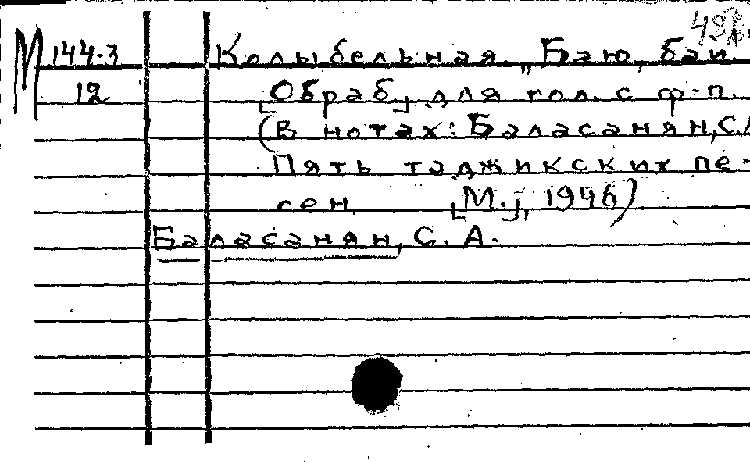 М 144-3 Колыбельная „Баю, баи
12 [Обраб.] для гол. с ф-п.
(В нотах: Баласанян, С.А
Пять таджикских пе-
сен [М.], 1946)
Баласанян, С. А.